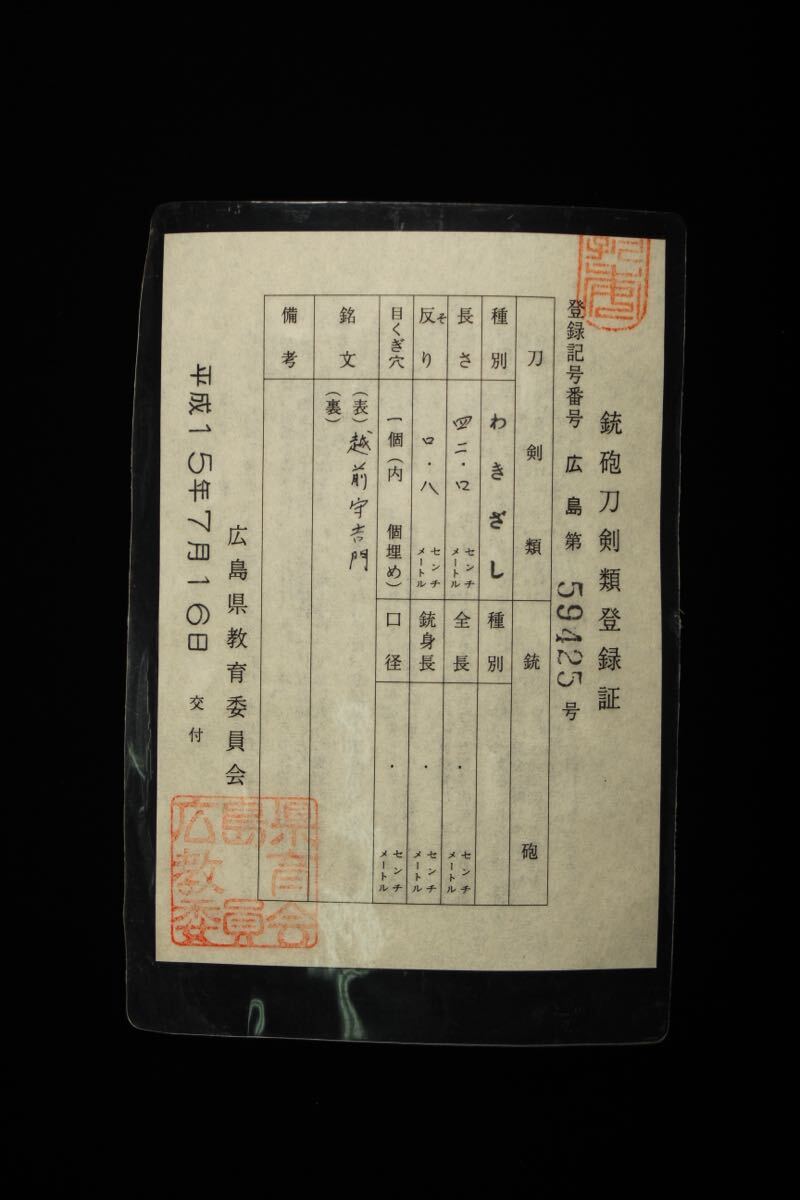 銃砲刀剣類登録証
登録記号番号 広島第59425号
刀剣類
種別 わきざし
長さ 四二・口 センチメートル
反り そ 口・八 センチメートル
目くぎ穴 一個(内 個埋め)
銘文 (表)越前守吉門
(裏)
備考
銃砲
種別
全長 ・ センチメートル
銃身長 ・ センチメートル
口径 ・ センチメートル
広島県教育委員会
平成15年7月16日 交付
広島県
教育
委員会